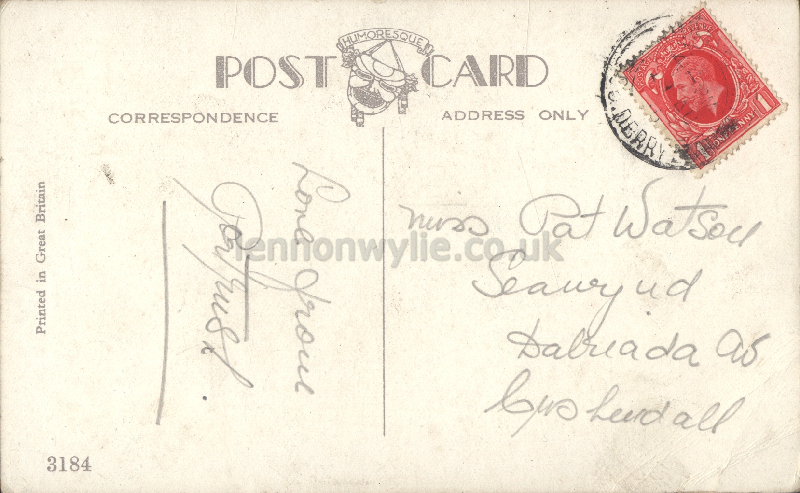 HUMORESQUE
POST CARD
CORRESPONDENCE
ADDRESS ONLY
Love from
Portrush
Miss Pat Watson
Seawynd
Dalriada Av
Cushendall
lennonwylie.co.uk
Printed in Great Britain
3184
DERRY
REVENUE
1